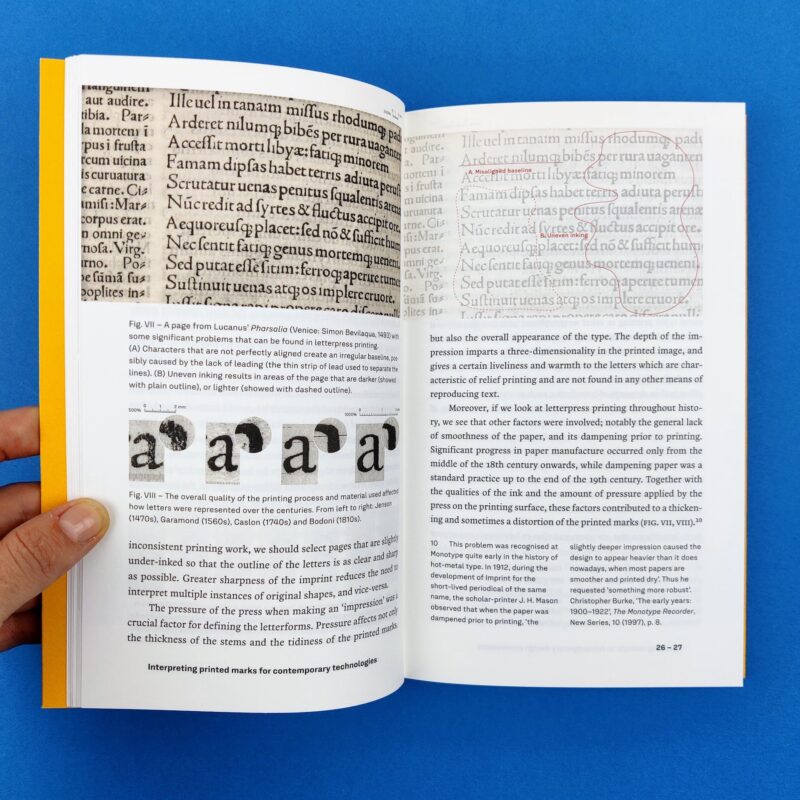 sanguinem
aut audire.
tibia. Par⸗
da mortem i
pus i frusta
um uicina
is curuatura
e carne. Ci⸗
amisi: Mar⸗
corpus erat.
n omni ge⸗
nosa. Virg.
urno. Po⸗
poplites in
Ille uel in tanaim missus rhodumq; pad
Arderet nilumq; bibẽs per rura uagante
Accessit morti libyæ: fatiq; minorem
Famam dipsas habet terris adiuta perust
Scrutatur uenas penitus squalentis arena
Nũc redit ad syrtes & fluctus accipit ore
Aequoreusq; placet: sed nõ & sufficit hum
Nec sentit fatiq; genus mortemq; uenen
Sed putat esse sitim: ferroq; aperire tume
Sustinuit uenas atq; os implere cruore.
Fig. VII – A page from Lucanus' Pharsalia (Venice: Simon Bevilaqua, 1493) with
some significant problems that can be found in letterpress printing.
(A) Characters that are not perfectly aligned create an irregular baseline, pos-
sibly caused by the lack of leading (the thin strip of lead used to separate the
lines). (B) Uneven inking results in areas of the page that are darker (showed
with plain outline), or lighter (showed with dashed outline).
500% 0 1 2 mm
1000% 0 1 mm
a a a a
Fig. VIII – The overall quality of the printing process and material used affected
how letters were represented over the centuries. From left to right: Jenson
(1470s), Garamond (1560s), Caslon (1740s) and Bodoni (1810s).
inconsistent printing work, we should select pages that are slightly
under-inked so that the outline of the letters is as clear and sharp
as possible. Greater sharpness of the imprint reduces the need to
interpret multiple instances of original shapes, and vice-versa.
The pressure of the press when making an 'impression' was a
crucial factor for defining the letterforms. Pressure affects not only
the thickness of the stems and the tidiness of the printed marks,
Interpreting printed marks for contemporary technologies
in tanaim missus rhodumq; padi
Arderet nilumq; bibẽs per rura uagantem
Accessit morti libyæ: fatiq; minorem
A. Misaligned baseline
Famam dipsas habet terris adiuta perusti
Scrutatur uenas penitus squalentis arenæ
Nũc redit ad syrtes & fluctus accipit ore
B. Uneven inking
Aequoreusq; placet: sed nõ & sufficit hum
Nec sentit fatiq; genus mortemq; ueneni
Sed putat esse sitim: ferroq; aperire tume
Sustinuit uenas atq; os implere cruore.
but also the overall appearance of the type. The depth of the im-
pression imparts a three-dimensionality in the printed image, and
gives a certain liveliness and warmth to the letters which are char-
acteristic of relief printing and are not found in any other means of
reproducing text.
Moreover, if we look at letterpress printing throughout histo-
ry, we see that other factors were involved; notably the general lack
of smoothness of the paper, and its dampening prior to printing.
Significant progress in paper manufacture occurred only from the
middle of the 18th century onwards, while dampening paper was a
standard practice up to the end of the 19th century. Together with
the qualities of the ink and the amount of pressure applied by the
press on the printing surface, these factors contributed to a thicken-
ing and sometimes a distortion of the printed marks (FIG. VII, VIII).10
10 This problem was recognised at
Monotype quite early in the history of
hot-metal type. In 1912, during the
development of Imprint for the
short-lived periodical of the same
name, the scholar-printer J. H. Mason
observed that when the paper was
dampened prior to printing, 'the
slightly deeper impression caused the
design to appear heavier than it does
nowadays, when most papers are
smoother and printed dry'. Thus he
requested 'something more robust'.
Christopher Burke, 'The early years:
1900–1922', The Monotype Recorder,
New Series, 10 (1997), p. 8.
26 – 27